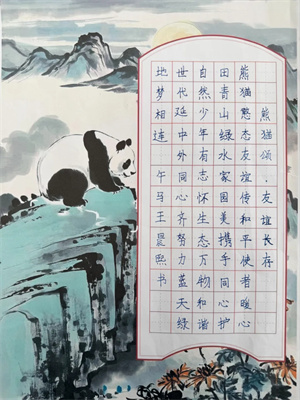 熊猫颂，友谊长存
熊猫憨态友谊传和平使者暖心
田青山绿水家园美携手同心护
自然少年有志怀生态万物和谐
世代延中外同心齐努力蓝天绿
地梦相连 午马王晨熙书